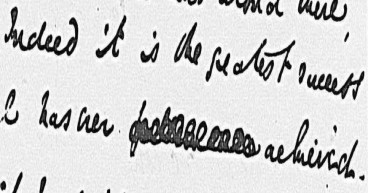 Indeed it is the greatest success
I has ever achieved.